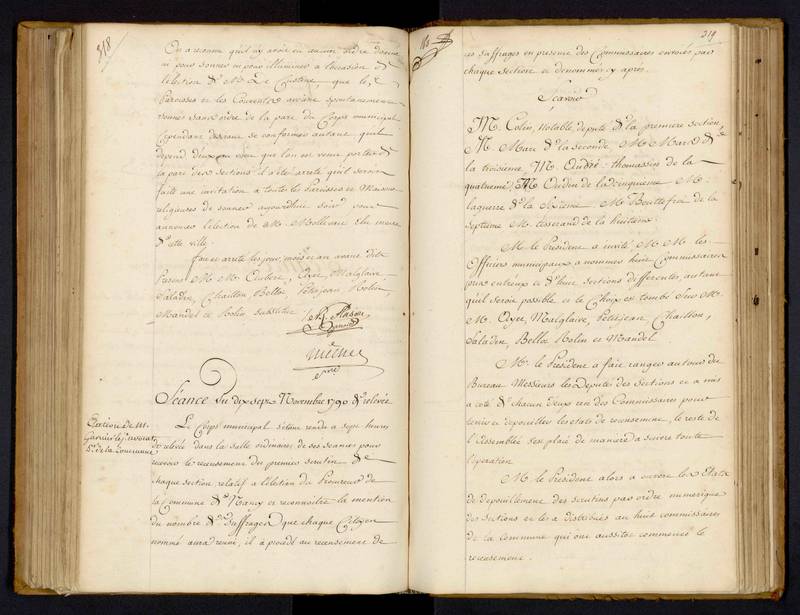 318
On a reconnu qu'il n'y avoit eu aucun ordre donné
ni pour sonner ni pour illuminer à l'occasion de
l'élection de M. Le Custine, que les
Paroisses et les Couvents avoient spontanément
sonné sans ordre de la part du Corps municipal
cependant desirant se conformer autant qu'il
depend d'eux au vœu que l'on est venu porter de
la part des Sections il a été arreté qu'il seroit
fait une invitation à toutes les Paroisses et Maisons
religieuses de sonner aujourdhui soir pour
annoncer l'élection de M. Mollevaut élu maire
de cette ville.
fait et arreté les jour, mois et an avant dits
Presens M. M. Aubert, Eyer, Malglaire
Saladin, Chaillon, Bella, Petitjean, Rolin,
Mandel et Rolin substitut
Séance du dix sept Novembre 1790 de relevée
Election de M.
Procureur
de la Commune
Le Corps municipal s'étant rendu à sept heures
de relevée dans la salle ordinaire de ses séances pour
recevoir le recensement du premier scrutin de
chaque section relatif à l'élection du Procureur de
la Commune de Nancy et reconnoitre la mention
du nombre de Suffrages que chaque Citoyen
nommé aura réuni, il a procédé au recensement de
165
319
ces suffrages en presence des Commissaires envoiés par
chaque Section et denommés cy après.
Scavoir
M. Colin, Notable, deputé de la premiere section,
M. Marc de la seconde, M. Marc de
la troisieme, M. André thomassin de la
quatrieme, M. Oudin de la cinquieme M.
laguerre de la Sixieme, M. Bouttefroi de la
septieme M. tisserand de la huitieme.
M. le President a invité M. M. les
Officiers municipaux à nommer huit Commissaires
pris entr'eux et de huit Sections differentes, autant
qu'il seroit possible et le choix est tombé sur M.
M. Eyer, Malglaire, Petitjean, Chaillon,
Saladin, Bella Rolin et Mandel.
M. le President a fait ranger autour du
Bureau Messieurs les Deputés des Sections et a mis
à coté de chacun d'eux un des Commissaires pour
tenir et depouiller les etats de recensement, le reste de
l'Assemblée s'est placé de maniere à suivre toute
l'operation
M. le President alors a ouvert les Etats
de depouillement des scrutins par ordre numerique
des Sections et les a distribués au huit commissaires
de la Commune qui ont aussitot commencé le
recensement.